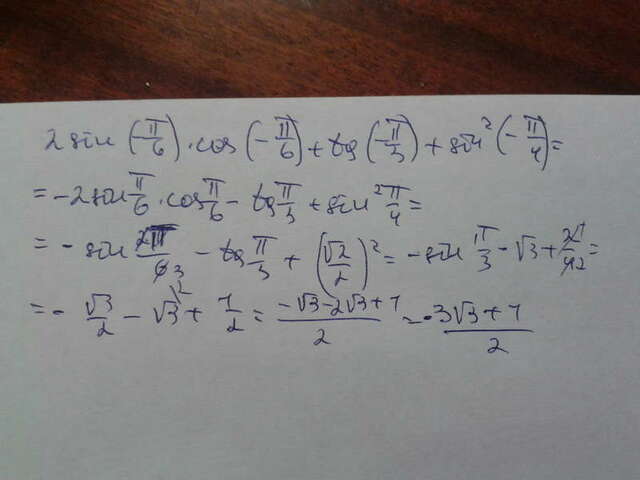 2 sin (-π/6) · cos (-π/6) + tg (-π/3) + sin² (-π/4) =
= -2 sin π/6 · cos π/6 - tg π/3 + sin² π/4 =
= - sin 2π/63 - tg π/3 + (√2/2)² = - sin π/3 - √3 + 21/42 =
= - √3/2 - √3\2 + 1/2 = (-√3-2√3+1)/2 = (-3√3+1)/2